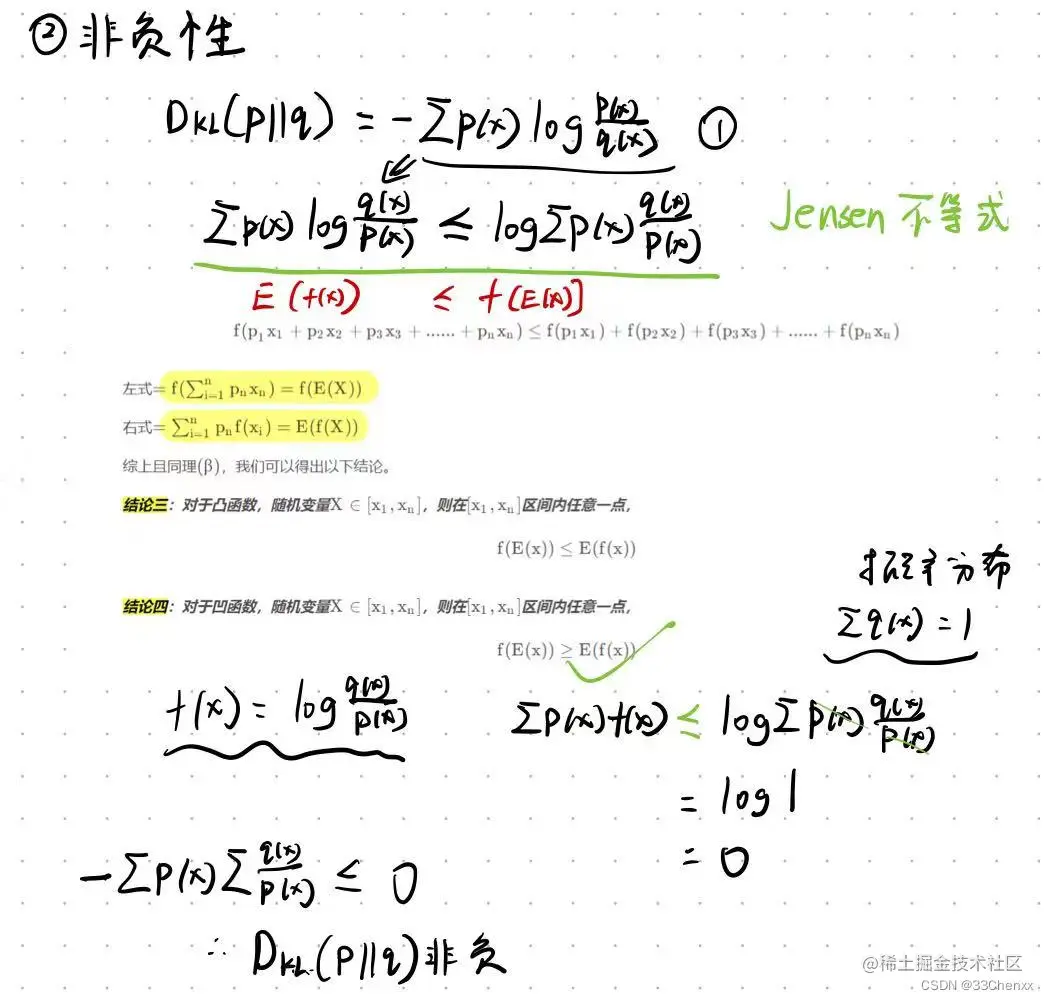 ② 非负性
D_KL(p||q) = -∑p(x) log p(x)/q(x) ①
∑p(x) log q(x)/p(x) ≤ log∑p(x) q(x)/p(x) Jensen 不等式
E(f(x)) ≤ f(E(x))
f(p₁x₁ + p₂x₂ + p₃x₃ + ...... + pₙxₙ) ≤ f(p₁x₁) + f(p₂x₂) + f(p₃x₃) + ...... + f(pₙxₙ)
左式= f(∑ⁿᵢ₌₁ pₙxₙ) = f(E(X))
右式= ∑ⁿᵢ₌₁ pₙf(xᵢ) = E(f(X))
综上且同理(β)，我们可以得出以下结论。
结论三：对于凸函数，随机变量X ∈ [x₁, xₙ]，则在[x₁, xₙ]区间内任意一点，
f(E(x)) ≤ E(f(x))
概率分布
结论四：对于凹函数，随机变量X ∈ [x₁, xₙ]，则在[x₁, xₙ]区间内任意一点，
∑q(x) = 1
f(E(x)) ≥ E(f(x))
f(x) = log q(x)/p(x)
∑p(x)f(x) ≤ log∑p(x) q(x)/p(x)
= log 1
= 0
-∑p(x)∑ q(x)/p(x) ≤ 0
∴ D_KL(p||q)非负
@稀土掘金技术社区
CSDN @33Chenxx